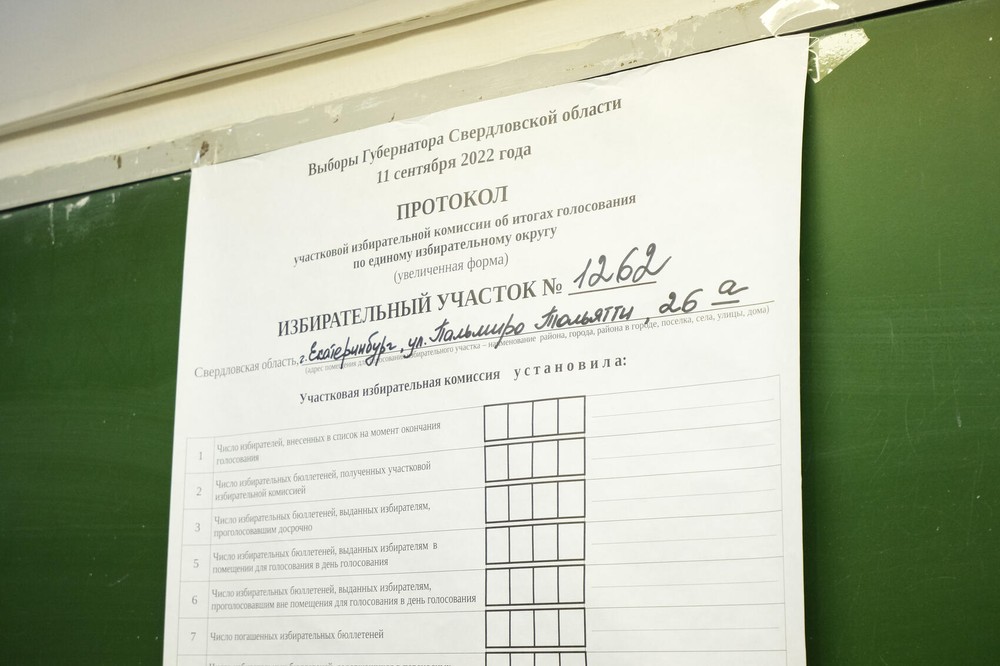 Выборы Губернатора Свердловской области
11 сентября 2022 года
ПРОТОКОЛ
участковой избирательной комиссии об итогах голосования
по единому избирательному округу
(увеличенная форма)
ИЗБИРАТЕЛЬНЫЙ УЧАСТОК № 1262
Свердловская область, г. Екатеринбург, ул. Пальмиро Тольятти, 26 а
(адрес помещения для голосования избирательного участка – наименование района, города, района в городе, поселка, села, улицы, дома)
Участковая избирательная комиссия установила:
1 Число избирателей, внесенных в список на момент окончания
голосования
2 Число избирательных бюллетеней, полученных участковой
избирательной комиссией
3 Число избирательных бюллетеней, выданных избирателям,
проголосовавшим досрочно
5 Число избирательных бюллетеней, выданных избирателям в
помещении для голосования в день голосования
6 Число избирательных бюллетеней, выданных избирателям,
проголосовавшим вне помещения для голосования в день голосования
7 Число погашенных избирательных бюллетеней